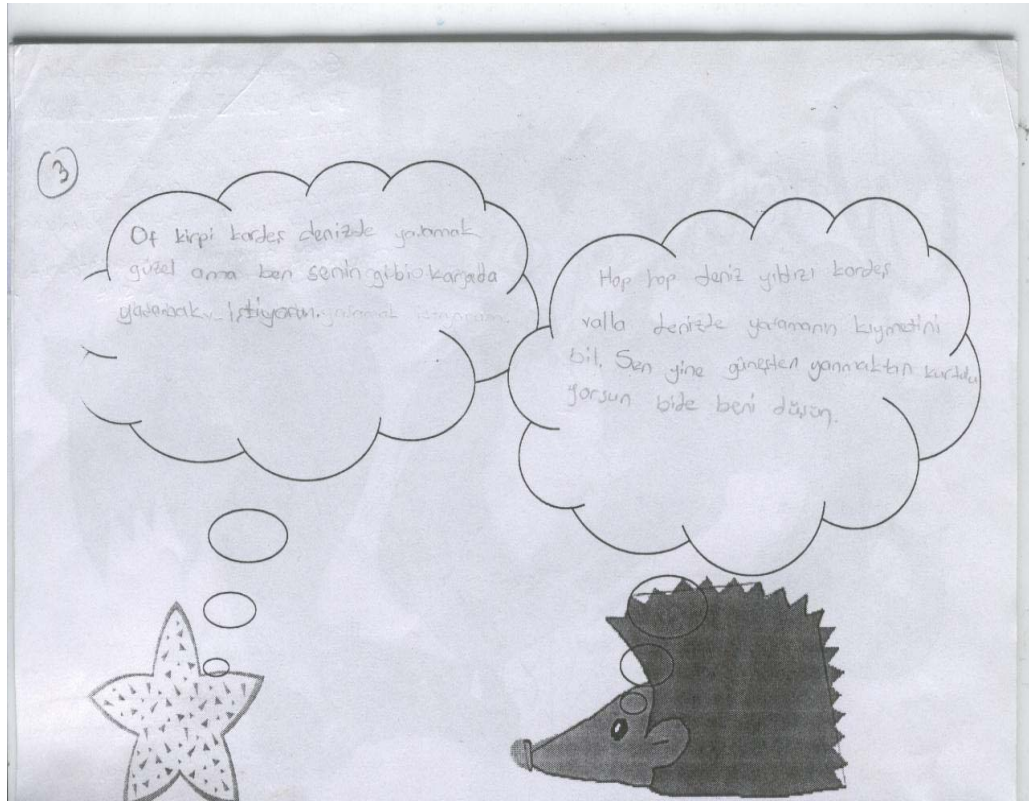 3
Of kirpi kardeş denizde yaşamak
güzel ama ben senin gibi karada
yaşamak istiyorum. yaşamak istiyorum.
Hop hop deniz yıldızı kardeş
valla denizde yaşamanın kıymetini
bil. Sen yine güneşten yanmaktan kurtulu
yorsun bide beni düşün.